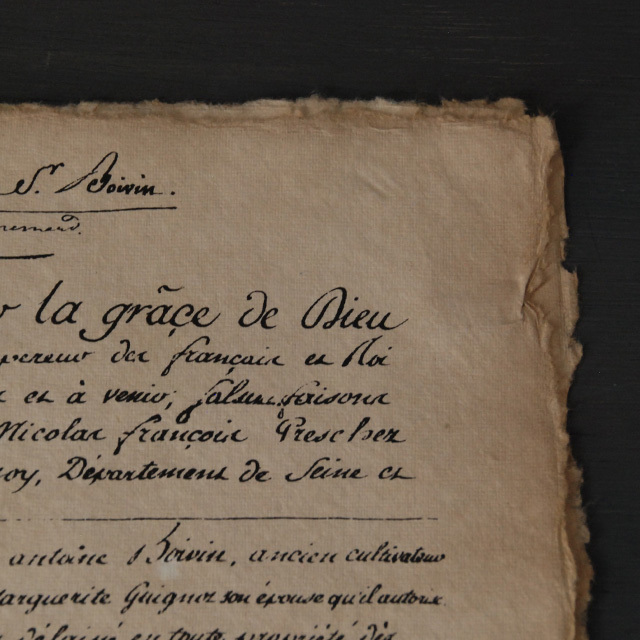 Sr Boivin.
la grâce de Dieu
pereur des françois et Roi
et à venir, salut, faisons
Nicolas françois Preschez
Département de Seine et
antoine Boivin, ancien cultivateur
Marguerite Guignor son épouse qu'il autorise
en toute propriété dès